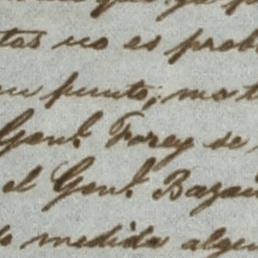 tas no es prob
un punto; mas t
Genl. Forey de
el Genl. Bazai
o medida algu